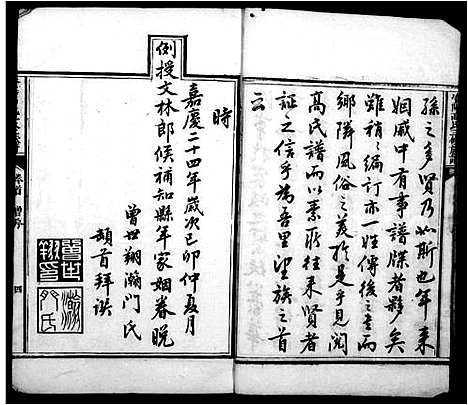 孫之多賢乃如斯也年來
姻戚中有事譜牒者夥矣
雖稍稍編訂亦一姓傳後之言而
鄉隣風俗之美於是乎見閱
高氏譜而以素所往來賢者
証之信乎為吾里望族之首
云
時
嘉慶二十四年歲次己卯仲夏月
例授文林郎候補知縣年家姻眷晚
曾世翔瀚門氏
頓首拜譔
卷首
曾序
四